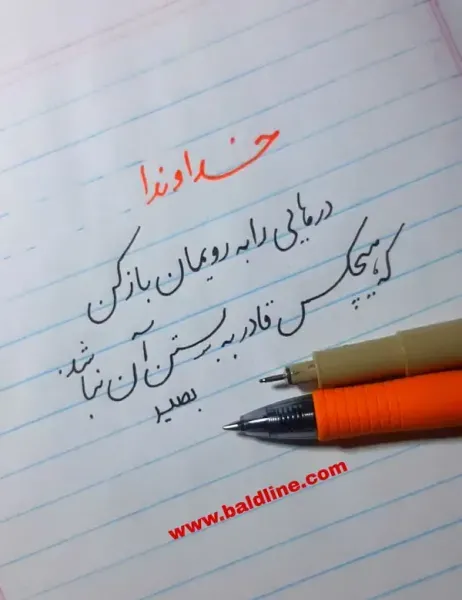 خداوندا
درهایی را به رویمان باز کن
که هیچکس قادر به بستن آن نباشد.
بصیر
www.baldline.com